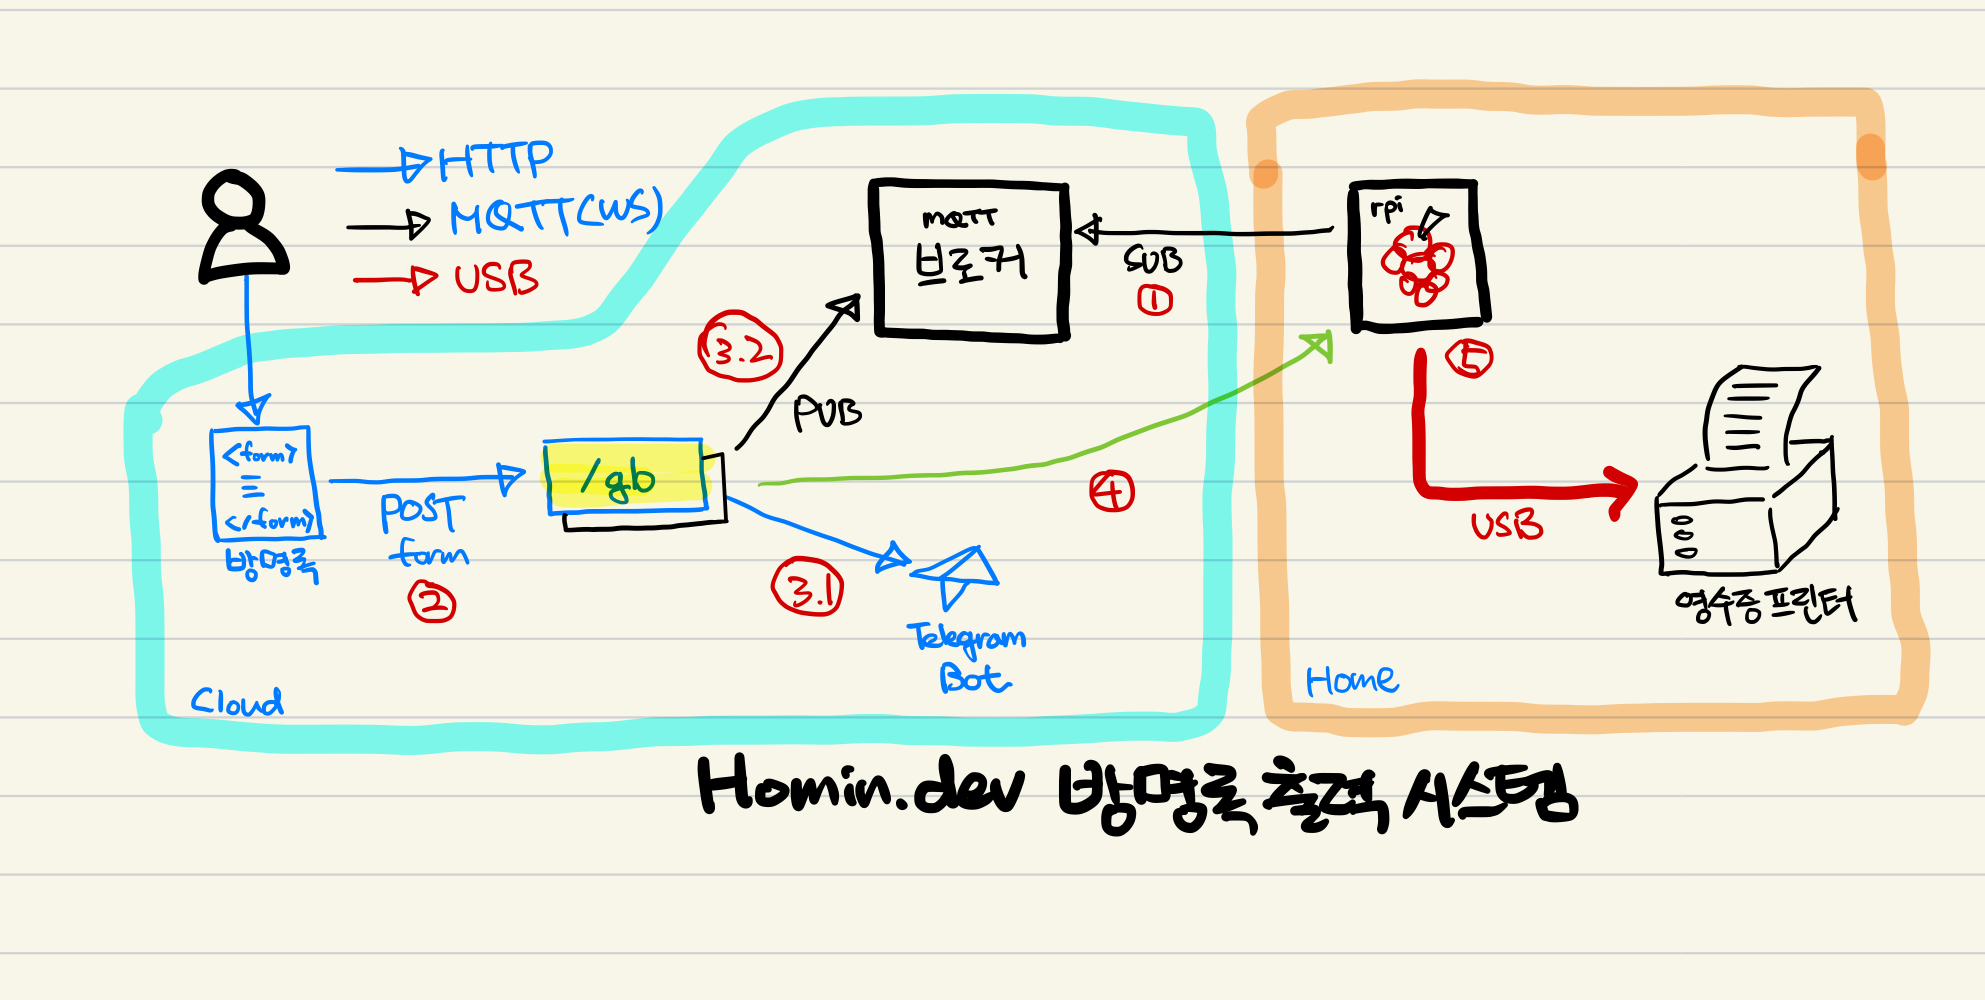 HTTP
MQTT(WS)
USB
mQTT
브로커
SUB
①
rpi
3.2
PUB
⑤
<form>
</form>
방명록
POST
form
②
/gb
④
3.1
Telegram
Bot
USB
영수증 프린터
Cloud
Home
Homin.dev 방명록 출력 시스템